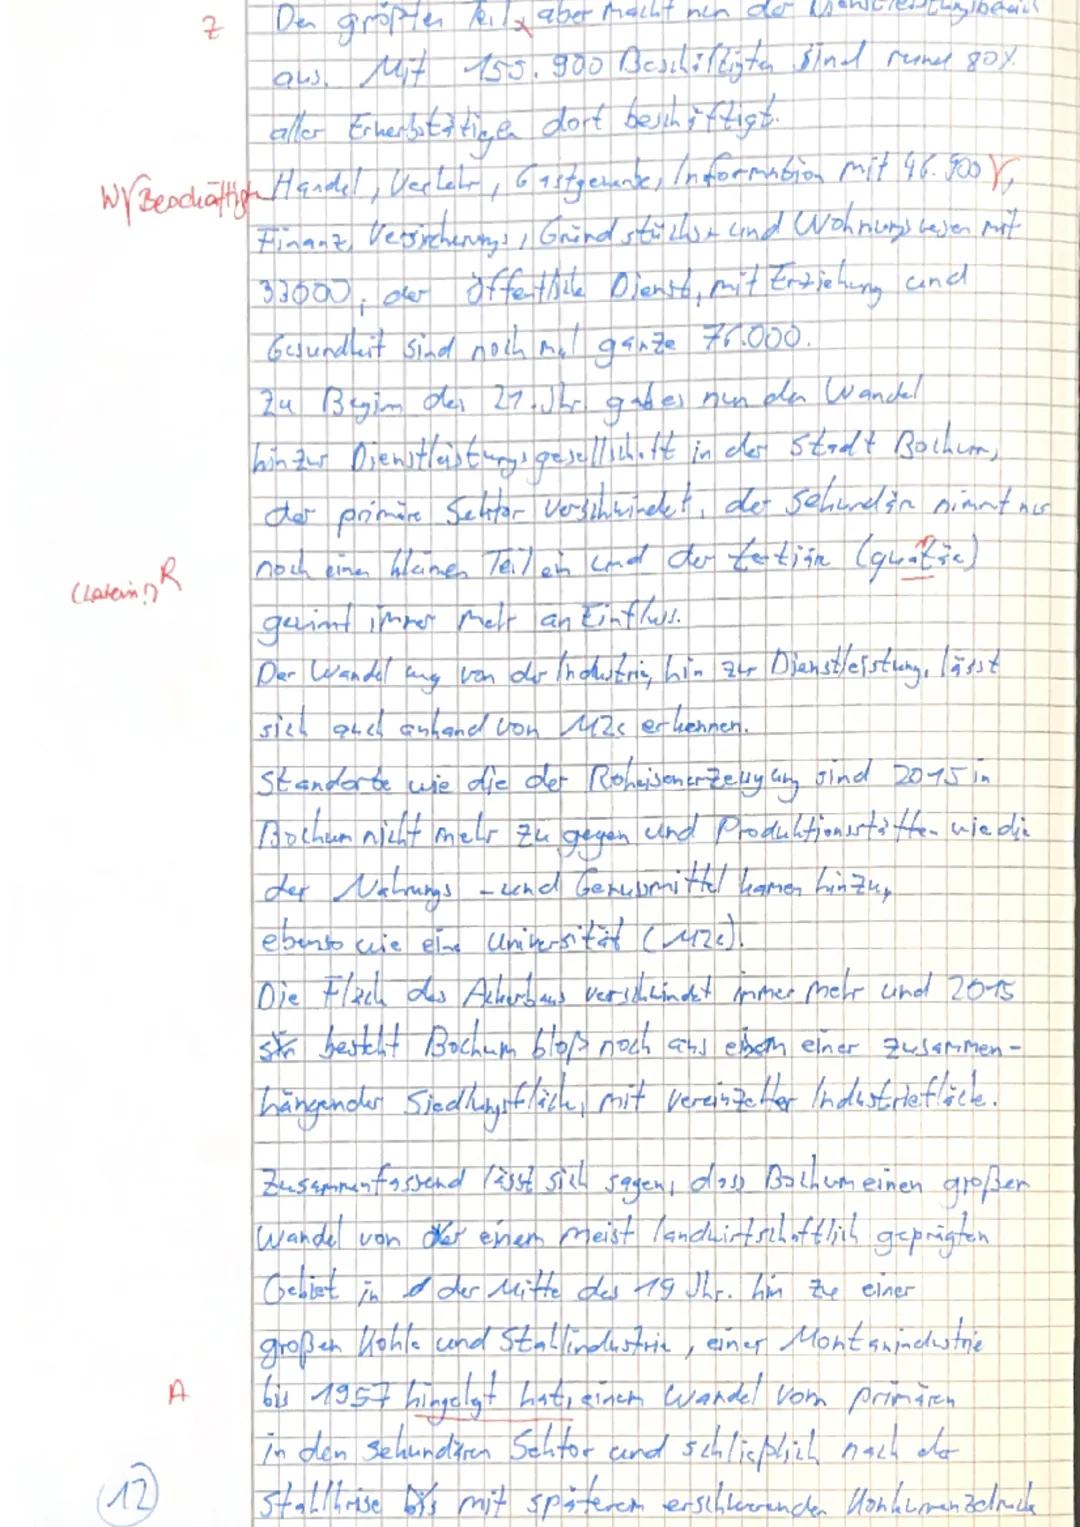 Z
Den größten Teil, aber macht nun der Dienstleistungsbereich
aus. Mit 155.900 Beschäftigten sind rund 80%
aller Erwerbstätigen dort beschäftigt.
W Beschäftigte Handel, Verkehr, Gastgewerbe, Information mit 46.900,
Finanz, Versicherungs, Grundstücks- und Wohnungswesen mit
33000, der öffentliche Dienst, mit Erziehung und
Gesundheit sind noch mal ganze 76.000.
Zu Beginn des 21. Jhr. gab es nun den Wandel
hin zur Dienstleistungsgesellschaft in der Stadt Bochum,
der primäre Sektor verschwindet, der Sekundär nimmt nur
noch einen kleinen Teil ein und der tertiär
(Latein!) R
gewinnt immer mehr an Einfluss.
Der Wandel weg von der Industrie, hin zur Dienstleistung, lässt
sich auch anhand von M2c erkennen.
Standorte wie die der Roheisenerzeugung sind 2015 in
Bochum nicht mehr zu gegen und Produktionsstätten wie die
der Nahrungs - und Genussmittel kamen hinzu,
ebenso wie eine Universität (M2c).
Die Fläch des Ackerbaus verschwindet immer mehr und 2015
besteht Bochum bloß noch aus einer zusammen-
hängender Siedlungsfläche, mit vereinzelter Industriefläche.
Zusammenfassend lässt sich sagen, dass Bochum einen großen
Wandel von einem meist landwirtschaftlich geprägten
Gebiet in der Mitte des 19 Jhr. hin zu einer
großen Kohle und Stahlindustrie, einer Montanindustrie
A
bis 1957 hingelgt hat, einem Wandel vom primären
in den sekundären Sektor und schließlich nach der
12
Stahlkrise mit späterem erschwerenden Konkurrenzdruck